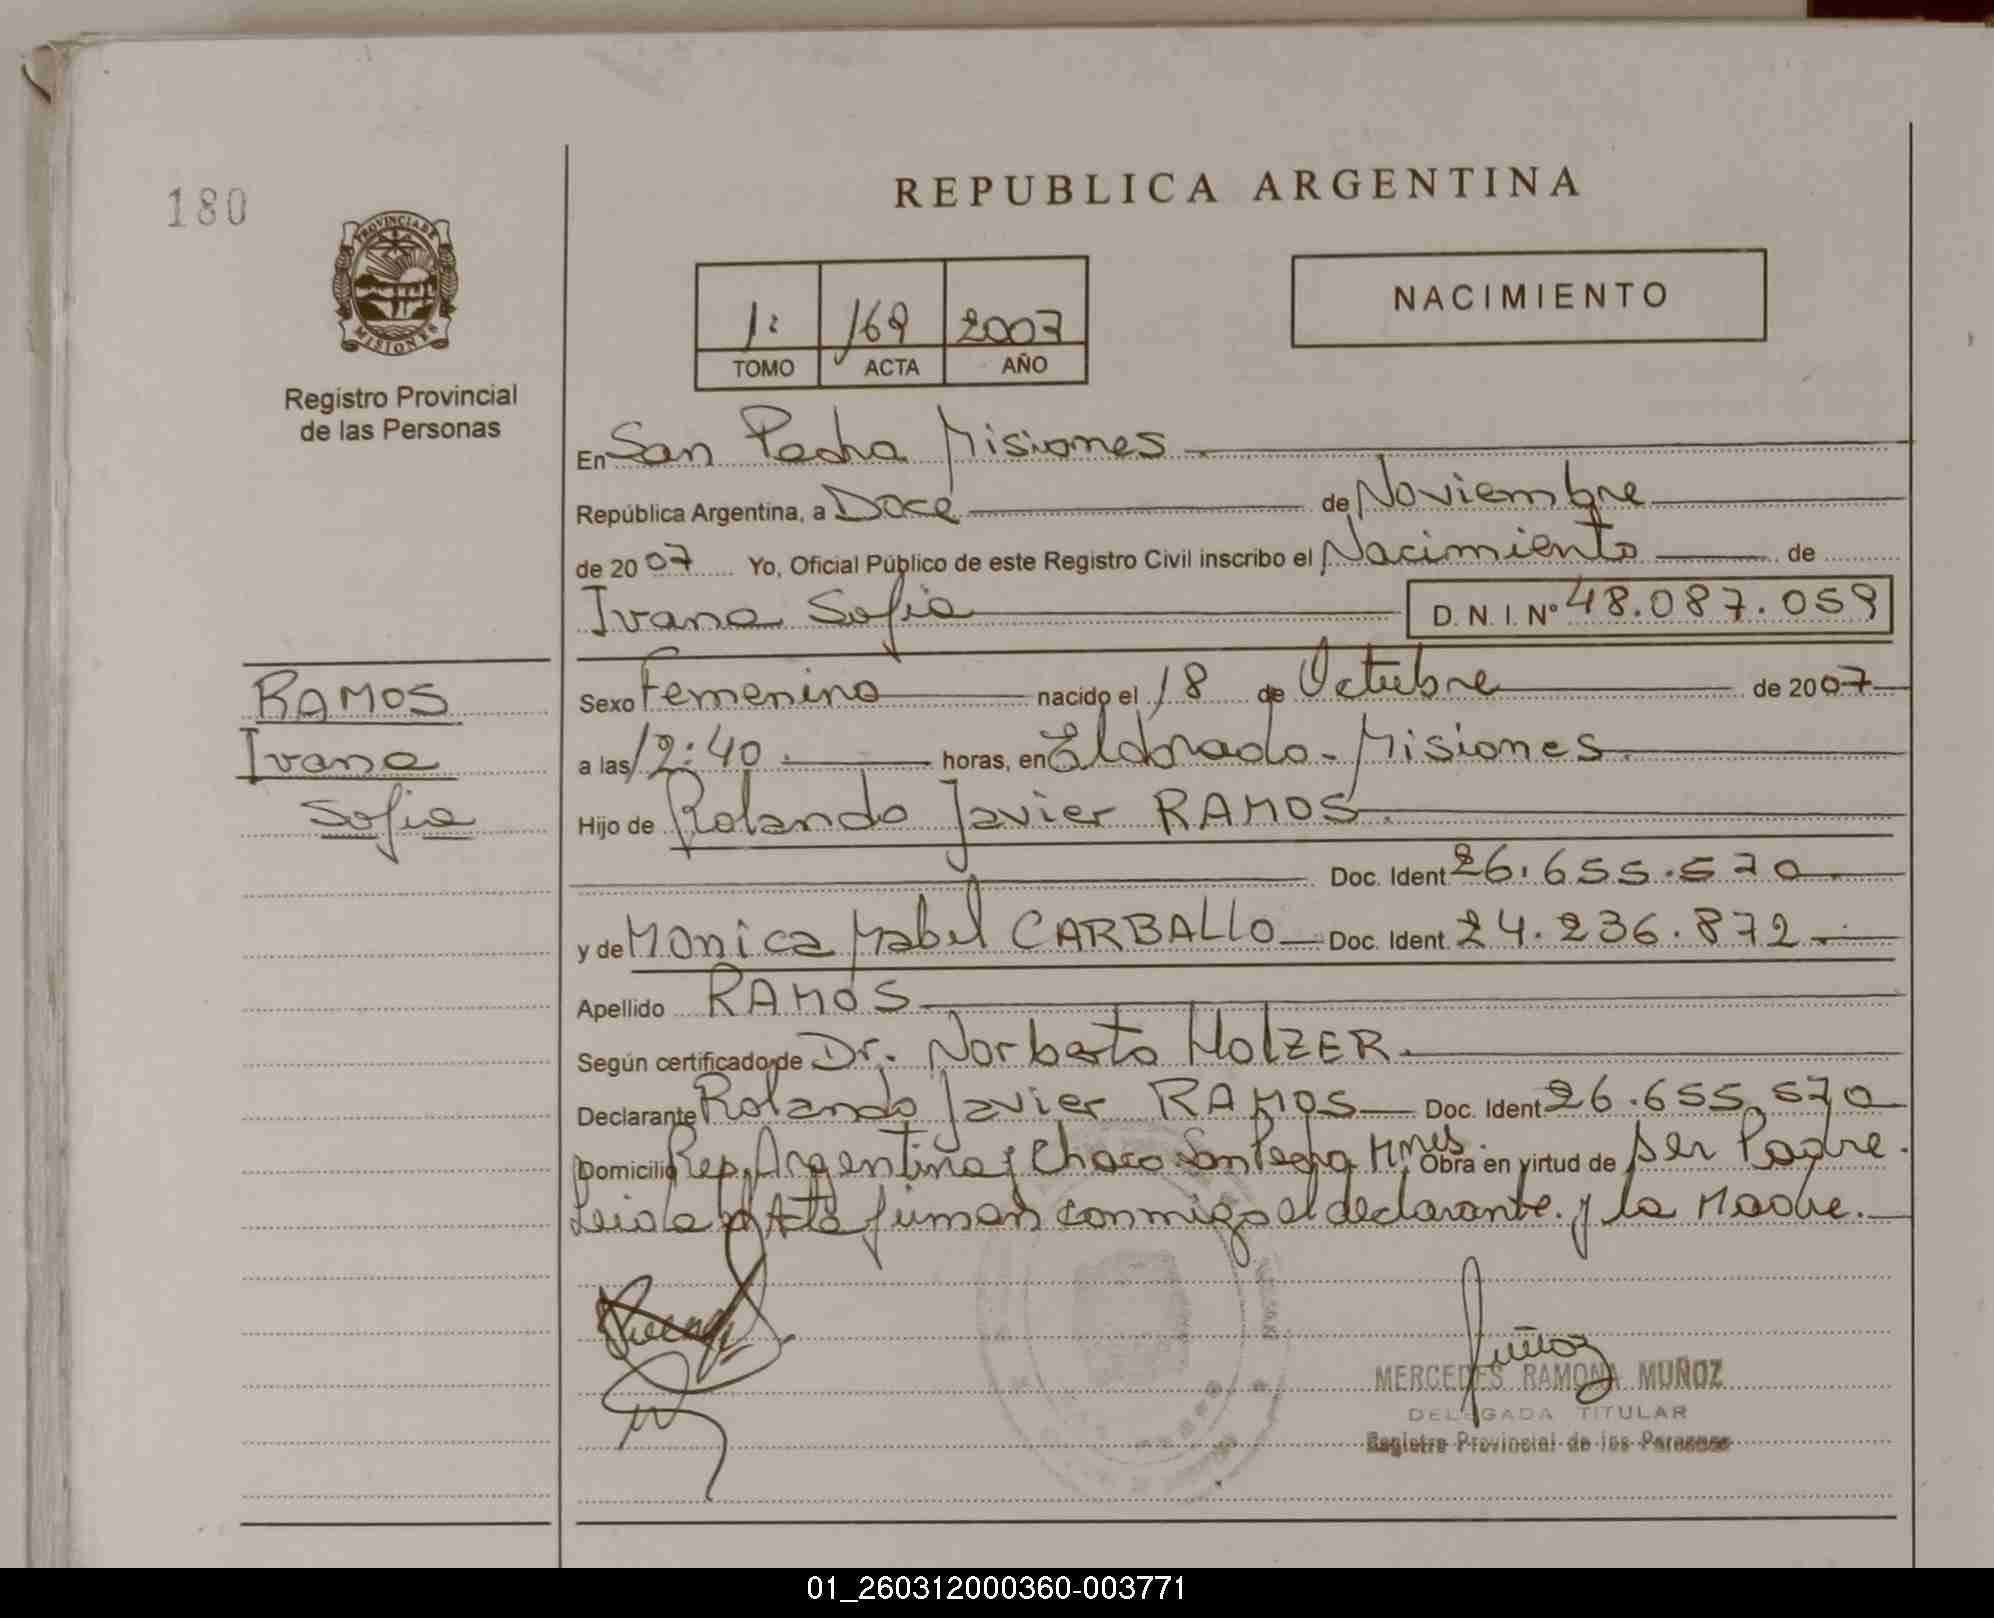 180
REPUBLICA ARGENTINA
PROVINCIA DE
MISIONES
Registro Provincial
de las Personas
1º 169 2007
TOMO ACTA AÑO
NACIMIENTO
En San Pedro Misiones
República Argentina, a Doce de Noviembre
de 2007 Yo, Oficial Público de este Registro Civil inscribo el Nacimiento de
Ivana Sofia D. N. I. Nº 48.087.059
RAMOS
Ivana
Sofia
Sexo Femenino nacido el 18 de Octubre de 2007
a las 12:40 horas, en Eldorado - Misiones
Hijo de Rolando Javier RAMOS
Doc. Ident 26.655.570
y de Monica Mabel CARBALLO Doc. Ident. 24.236.872
Apellido RAMOS
Según certificado de Dr. Norberto HOLZER
Declarante Rolando Javier RAMOS Doc. Ident 26.655.570
Domicilio Rep. Argentina y Chaco San Pedro Mnes. Obra en virtud de ser Padre.
Leida el Acta firman conmigo el declarante y la Madre.
Muñoz
MERCEDES RAMONA MUÑOZ
DELEGADA TITULAR
Registro Provincial de las Personas
01_260312000360-003771